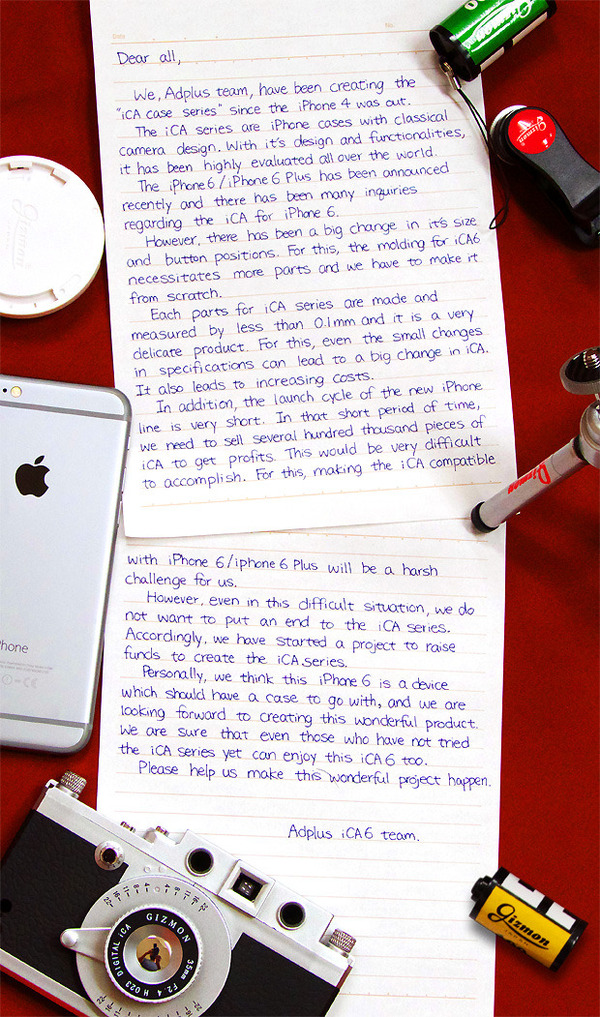 Date
No.
Dear all,
We, Adplus team, have been creating the
"iCA case series" since the iPhone 4 was out.
The iCA series are iPhone cases with classical
camera design. With it's design and functionalities,
it has been highly evaluated all over the world.
The iPhone6/iPhone 6 Plus has been announced
recently and there has been many inquiries
regarding the iCA for iPhone 6.
However, there has been a big change in it's size
and button positions. For this, the molding for iCA6
necessitates more parts and we have to make it
from scratch.
Each parts for iCA series are made and
measured by less than 0.1mm and it is a very
delicate product. For this, even the small changes
in specifications can lead to a big change in iCA.
It also leads to increasing costs.
In addition, the launch cycle of the new iPhone
line is very short. In that short period of time,
we need to sell several hundred thousand pieces of
iCA to get profits. This would be very difficult
to accomplish. For this, making the iCA compatible
with iPhone 6/iphone 6 Plus will be a harsh
challenge for us.
However, even in this difficult situation, we do
not want to put an end to the iCA series.
Accordingly, we have started a project to raise
funds to create the iCA series.
Personally, we think this iPhone 6 is a device
which should have a case to go with, and we are
looking forward to creating this wonderful product.
We are sure that even those who have not tried
the iCA series yet can enjoy this iCA 6 too.
Please help us make this wonderful project happen.
Adplus iCA6 team.
Gizmon
Gizmon
Gizmon
Phone
GIZMON 35mm F2.4 H023 DIGITAL iCA
Gizmon